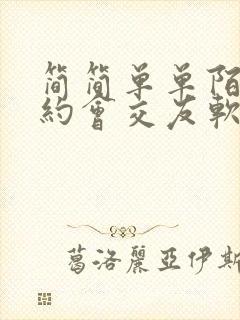 简简单单陌
約會交友軟
葛洛麗亞伊斯